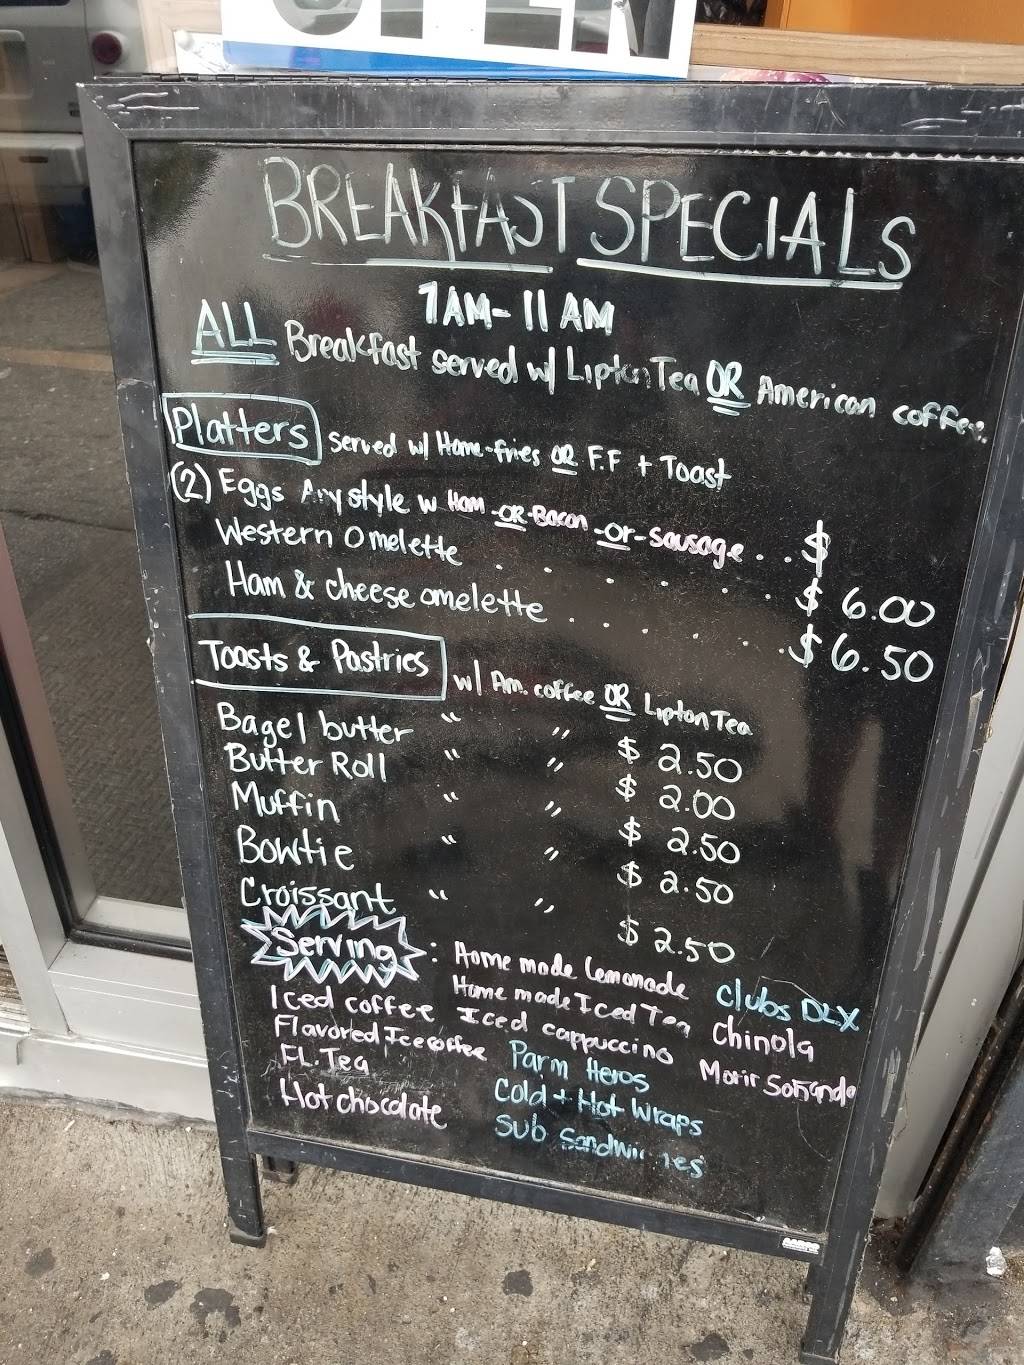 OPEN
BREAKFAST SPECIALS
7AM-11AM
ALL Breakfast served w/ Lipton Tea OR American coffee.
Platters served w/ Home-fries OR F.F + Toast
(2) Eggs Any style w Ham -OR- Bacon -Or- Sausage . . . $
Western Omelette . . . . . . . $ 6.00
Ham & cheese omelette . . . . . . . $6.50
Toasts & Pastries w/ Am. coffee OR Lipton Tea
Bagel butter " " $ 2.50
Butter Roll " " $ 2.00
Muffin " " $ 2.50
Bowtie " " $ 2.50
Croissant " " $ 2.50
Serving : Home made Lemonade Clubs DLX
Iced coffee Home made Iced Tea Chinola
Flavored Ice coffee Iced cappuccino Morir Soñando
FL. Tea Parm Heros
Hot chocolate Cold + Hot Wraps
Sub